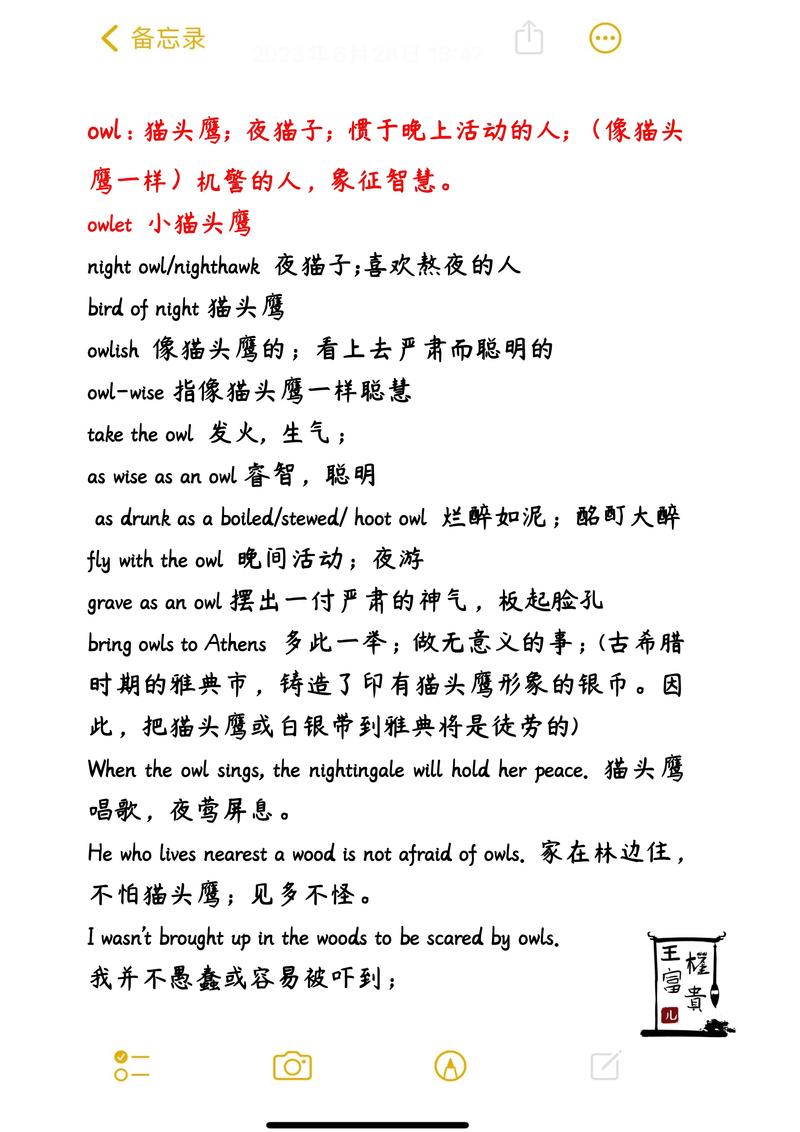 备忘录
2023年6月28日 19:42
owl：猫头鹰；夜猫子；惯于晚上活动的人；（像猫头
鹰一样）机警的人，象征智慧。
owlet 小猫头鹰
night owl/nighthawk 夜猫子;喜欢熬夜的人
bird of night 猫头鹰
owlish 像猫头鹰的；看上去严肃而聪明的
owl-wise 指像猫头鹰一样聪慧
take the owl 发火，生气；
as wise as an owl 睿智，聪明
as drunk as a boiled/stewed/ hoot owl 烂醉如泥；酩酊大醉
fly with the owl 晚间活动；夜游
grave as an owl 摆出一付严肃的神气，板起脸孔
bring owls to Athens 多此一举；做无意义的事；（古希腊
时期的雅典市，铸造了印有猫头鹰形象的银币。因
此，把猫头鹰或白银带到雅典将是徒劳的）
When the owl sings, the nightingale will hold her peace. 猫头鹰
唱歌，夜莺屏息。
He who lives nearest a wood is not afraid of owls. 家在林边住，
不怕猫头鹰；见多不怪。
I wasn't brought up in the woods to be scared by owls.
我并不愚蠢或容易被吓到；
王富
貴
儿